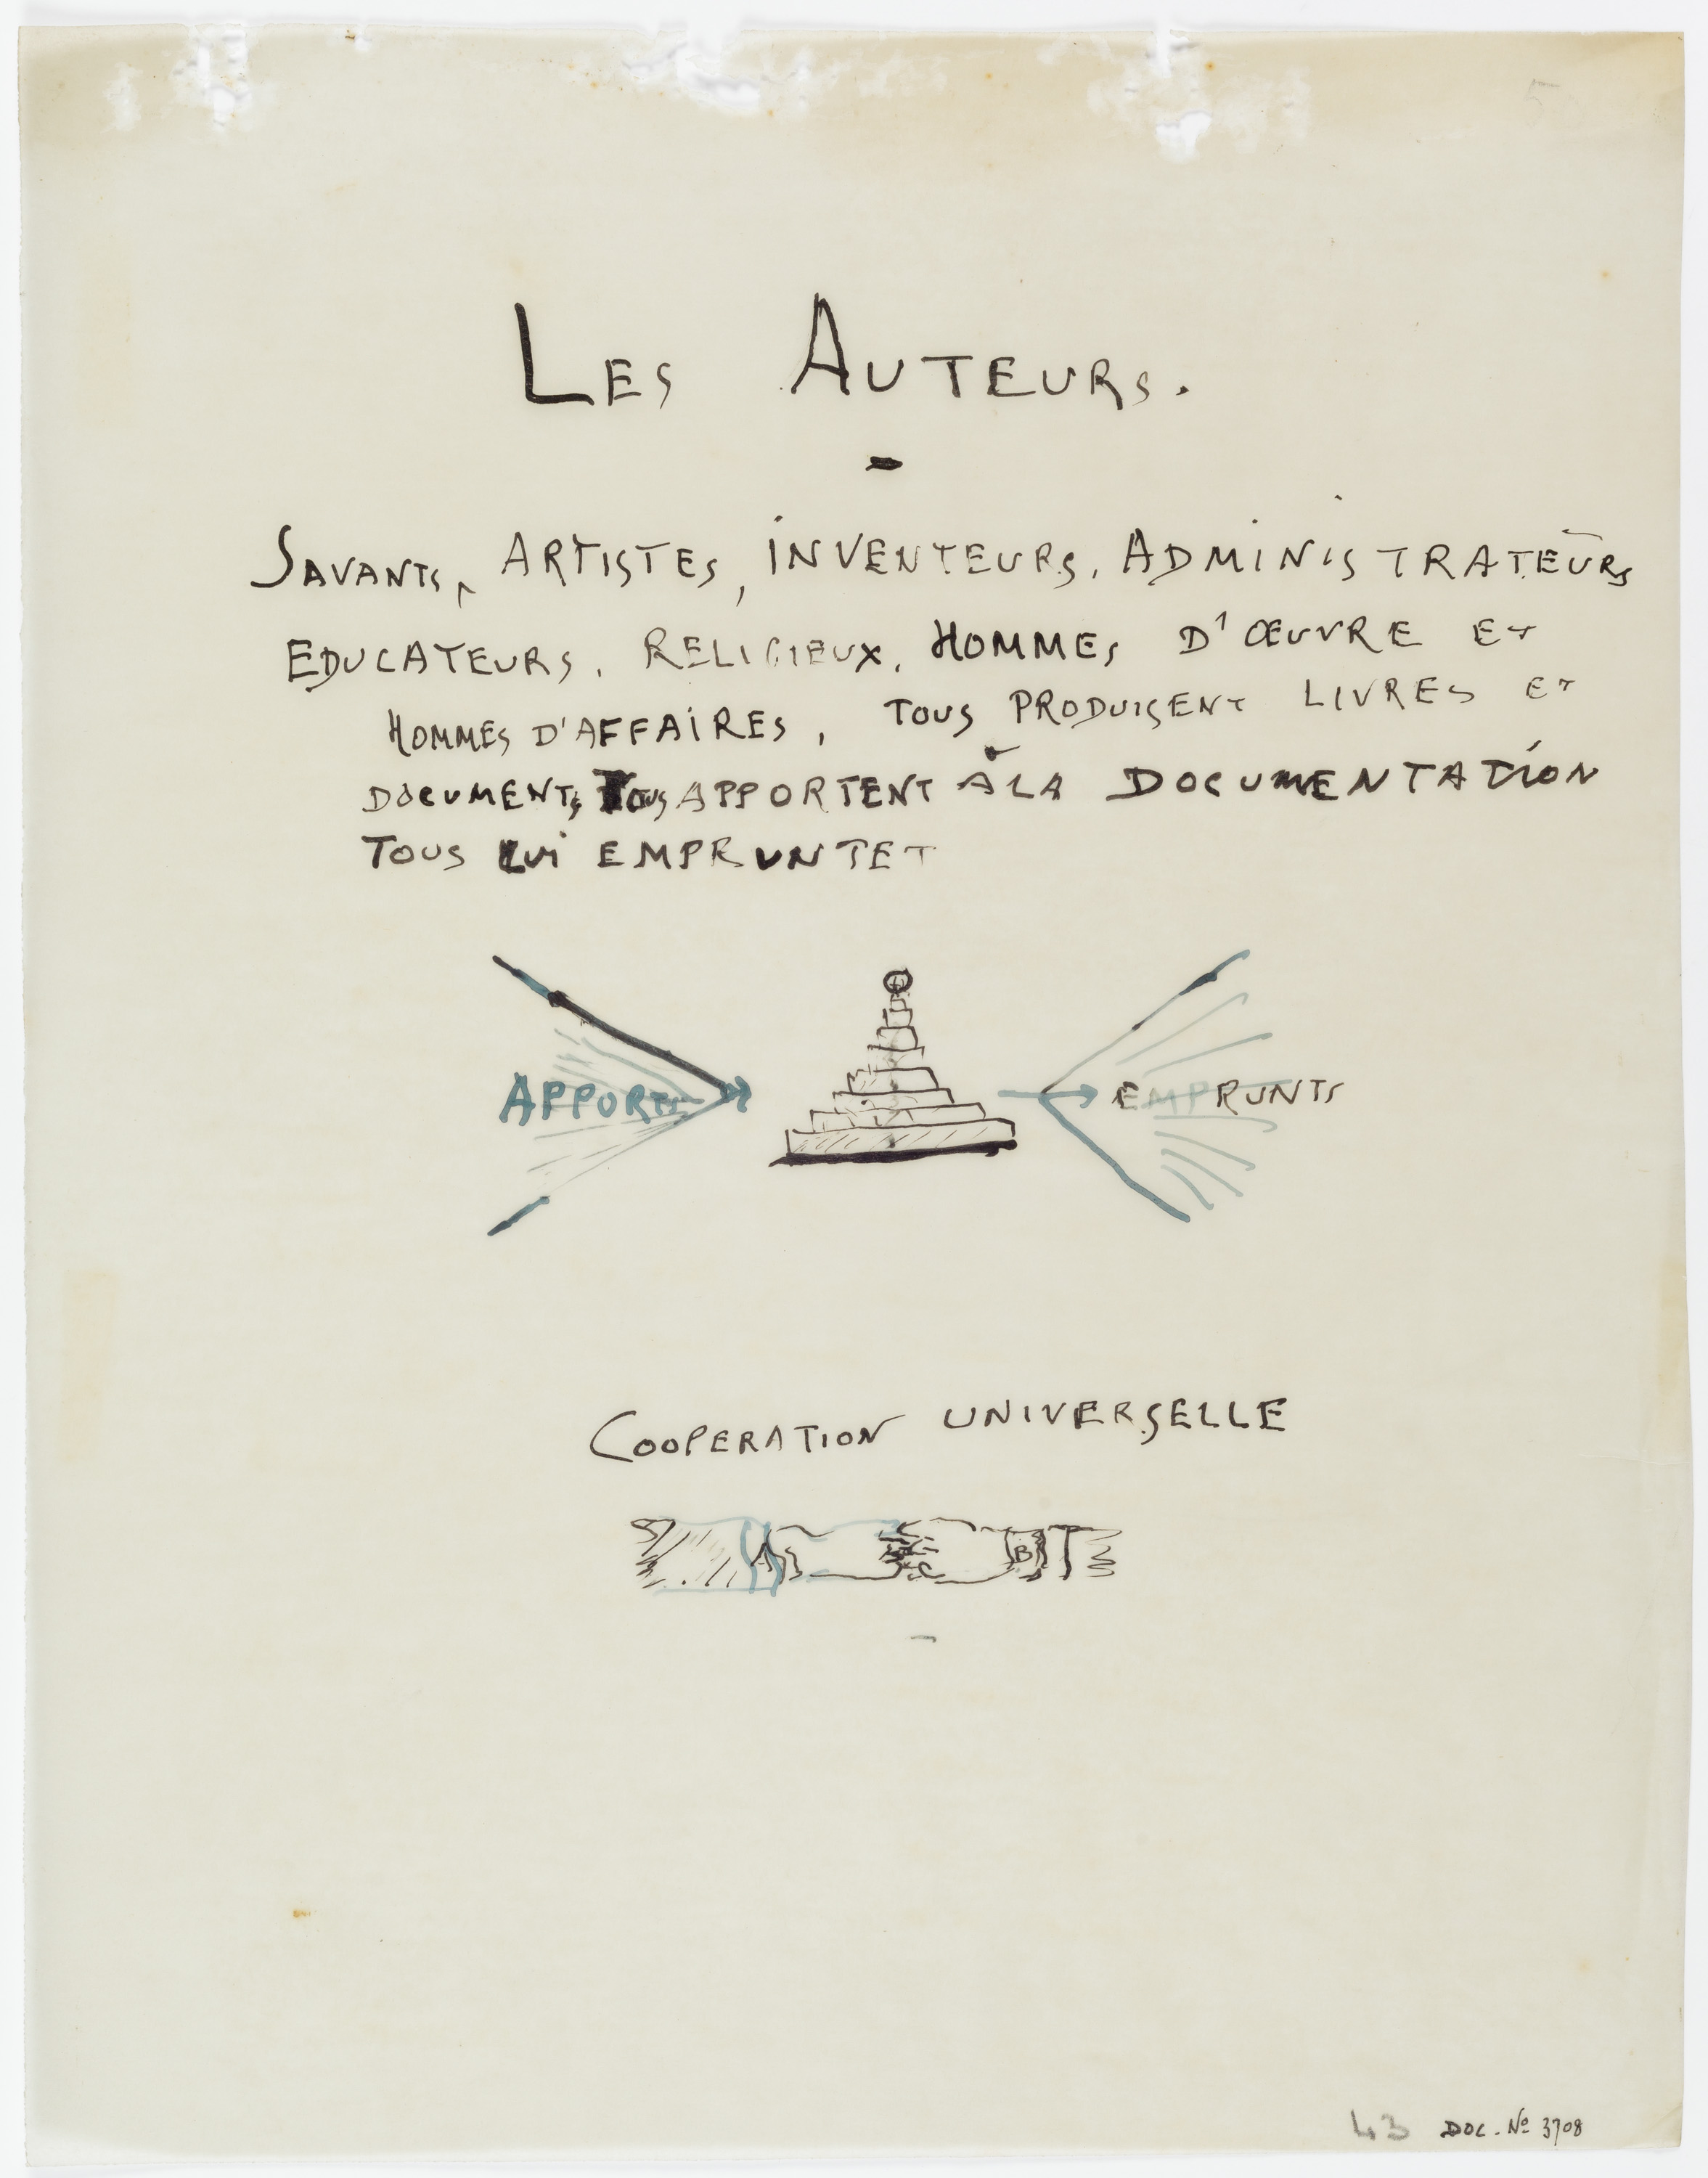 5
LES AUTEURS.
SAVANTS, ARTISTES, INVENTEURS, ADMINISTRATEURS
EDUCATEURS, RELIGIEUX, HOMMES D'ŒUVRE ET
HOMMES D'AFFAIRES, TOUS PRODUISENT LIVRES ET
DOCUMENTS, TOUS APPORTENT À LA DOCUMENTATION
TOUS LUI EMPRUNTET
APPORTS
EMPRUNTS
COOPERATION UNIVERSELLE
A
B
43 DOC. Nº 3708